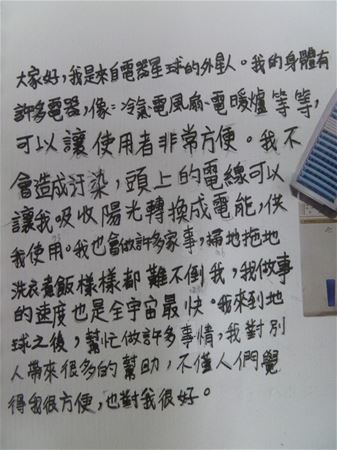 大家好,我是來自電器星球的外星人。我的身體有
許多電器,像:冷氣、電風扇、電暖爐等等,
可以讓使用者非常方便。我不
會造成汙染,頭上的電線可以
讓我吸收陽光轉換成電能,供
我使用。我也會做許多家事,掃地拖地
洗衣煮飯樣樣都難不倒我,我做事
的速度也是全宇宙最快。我來到地
球之後,幫忙做許多事情,我對別
人帶來很多的幫助,不僅人們覺
得我很方便,也對我很好。